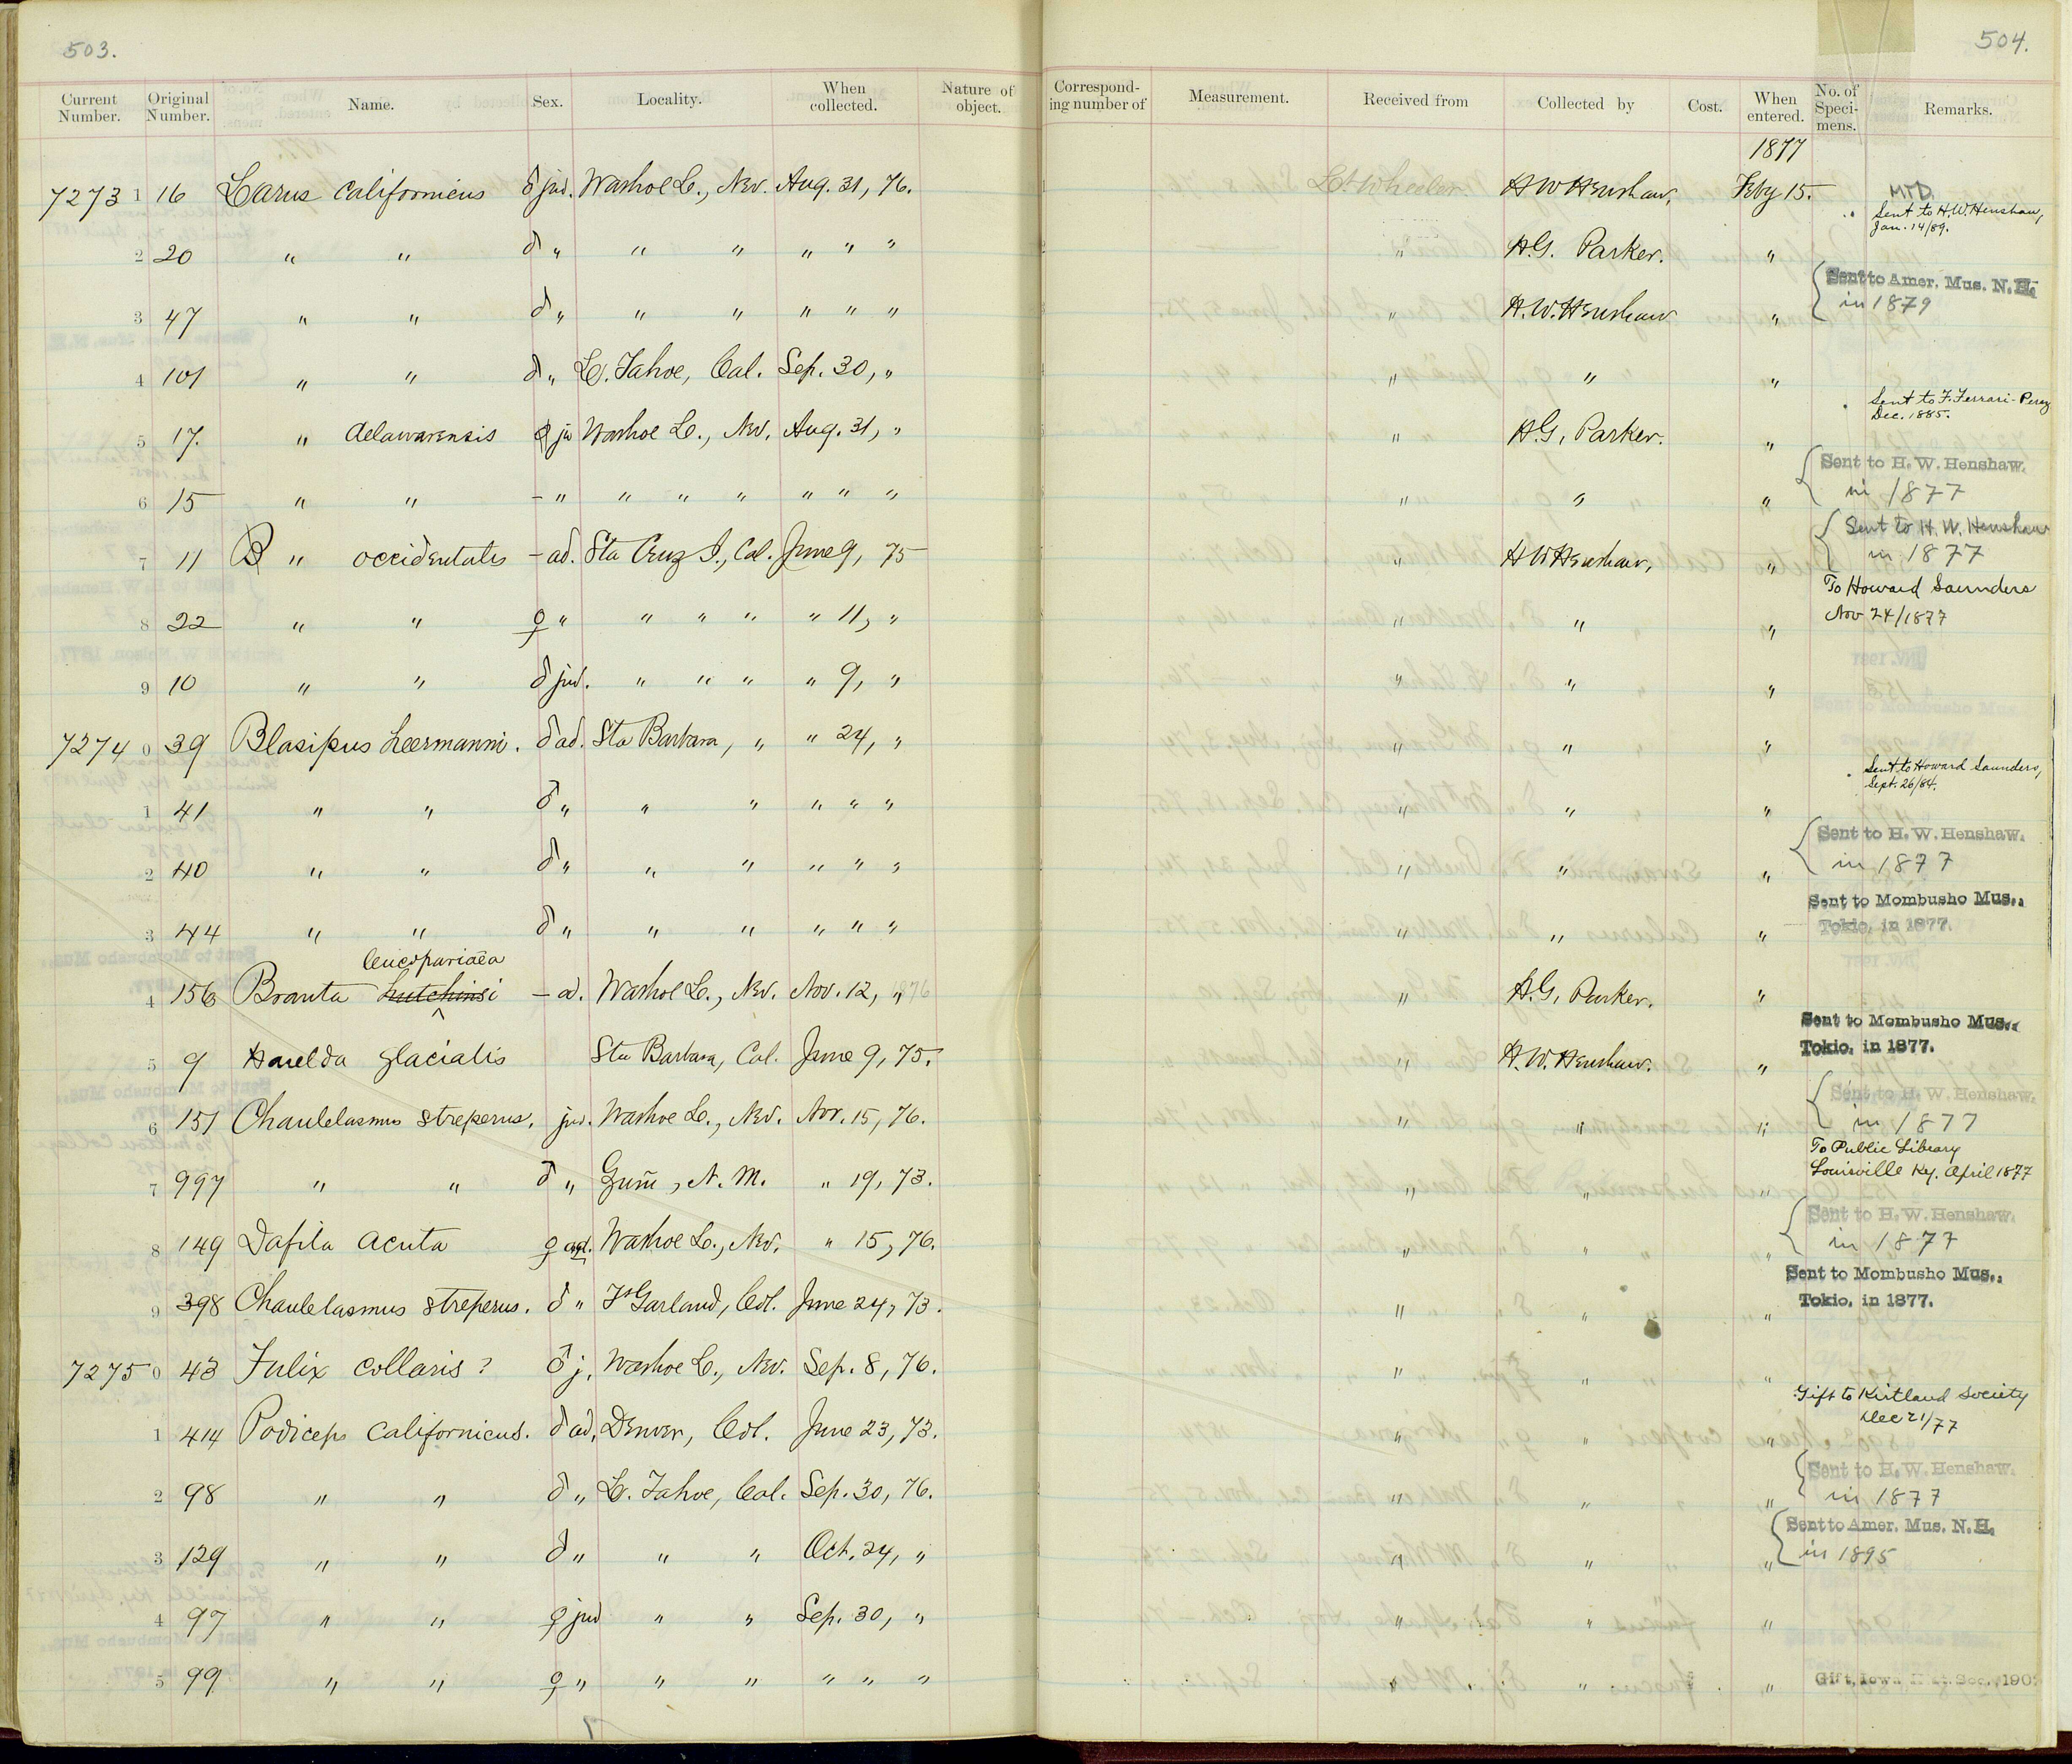 503.
504.
Current Number. Original Number. Name. Sex. Locality. When collected. Nature of object. Corresponding number of Measurement. Received from Collected by Cost. When entered. No. of Specimens. Remarks.
1877
7273 1 16 Larus Californicus ♂ juv. Washoe L., Nev. Aug. 31, 76. Lt. Wheeler. H W Henshaw, Feby 15. MTD. Sent to H.W. Henshaw, Jan. 14/89.
2 20 " " ♂ " " " " " " " H.G. Parker. "
3 47 " " ♂ " " " " " " " H.W. Henshaw " { Sent to Amer. Mus. N.H. in 1879
4 101 " " ♂ " L. Tahoe, Cal. Sep. 30, " " " "
5 17. " delawarensis ♀ juv Washoe L., Nev. Aug. 31, " " H.G. Parker. " Sent to F. Ferrari-Perez Dec. 1885.
6 15 " " – " " " " " " " " " " { Sent to H. W. Henshaw. in 1877
7 11 B " occidentalis – ad. Sta Cruz I., Cal. June 9, 75 " H W Henshaw, " { Sent to H. W. Henshaw in 1877
8 22 " " ♀ " " " " " 11, " " " " To Howard Saunders Nov 24/1877
9 10 " " ♂ juv. " " " " 9, " " " "
7274 0 39 Blasipus heermanni. ♂ ad. Sta Barbara, " " 24, " " " "
1 41 " " ♂ " " " " " " " " " Sent to Howard Saunders, Sept. 26/84.
2 40 " " ♂ " " " " " " " " " { Sent to H. W. Henshaw. in 1877
3 44 " " ♂ " " " " " " " " " Sent to Mombusho Mus., Tokio, in 1877.
leucopariaea
4 156 Branta hutchinsi – ad. Washoe L., Nev. Nov. 12, " 1876 " H.G. Parker. "
5 9 Harelda glacialis Sta Barbara, Cal. June 9, 75. " H.W. Henshaw. " Sent to Mombusho Mus., Tokio, in 1877.
6 151 Chaulelasmus streperus, juv. Washoe L., Nev. Nov. 15, 76. " " " { Sent to H. W. Henshaw. in 1877
7 997 " " ♂ " Zuñi, N. M. " 19, 73. " " " To Public Library Louisville Ky. April 1877
8 149 Dafila acuta ♀ ad. Washoe L., Nev. " 15, 76. " " " { Sent to H. W. Henshaw. in 1877
9 398 Chaulelasmus streperus. ♂ " Ft Garland, Col. June 24, 73. " " " Sent to Mombusho Mus., Tokio, in 1877.
7275 0 43 Fulix collaris? ♂ j. Washoe L., Nev. Sep. 8, 76. " " "
1 414 Podiceps Californicus. ♂ ad. Denver, Col. June 23, 73. " " " Gift to Kirtland Society Dec 21/77
2 98 " " ♂ " L. Tahoe, Cal. Sep. 30, 76. " " " { Sent to H. W. Henshaw. in 1877
3 129 " " ♂ " " " Oct. 24, " " " " { Sent to Amer. Mus. N. H. in 1895
4 97 " " ♀ juv " " Sep. 30, " " " "
5 99 " " ♀ " " " " " " " " " Gift, Iowa Soc.,